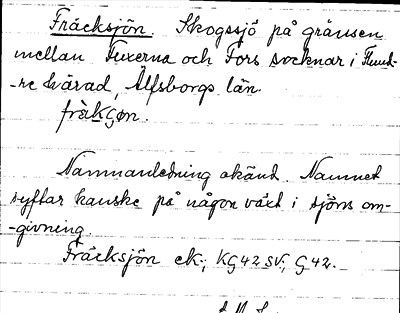 Fräcksjön. Skogssjö på gränsen
mellan Fuxerna och Fors socknar i Flund-
-re härad, Älfsborgs län.
Namnanledning okänd. Namnet
syftar kanske på någon växt i sjöns om-
-givning.
Fräcksjön ek.; KG42SV.; G42.